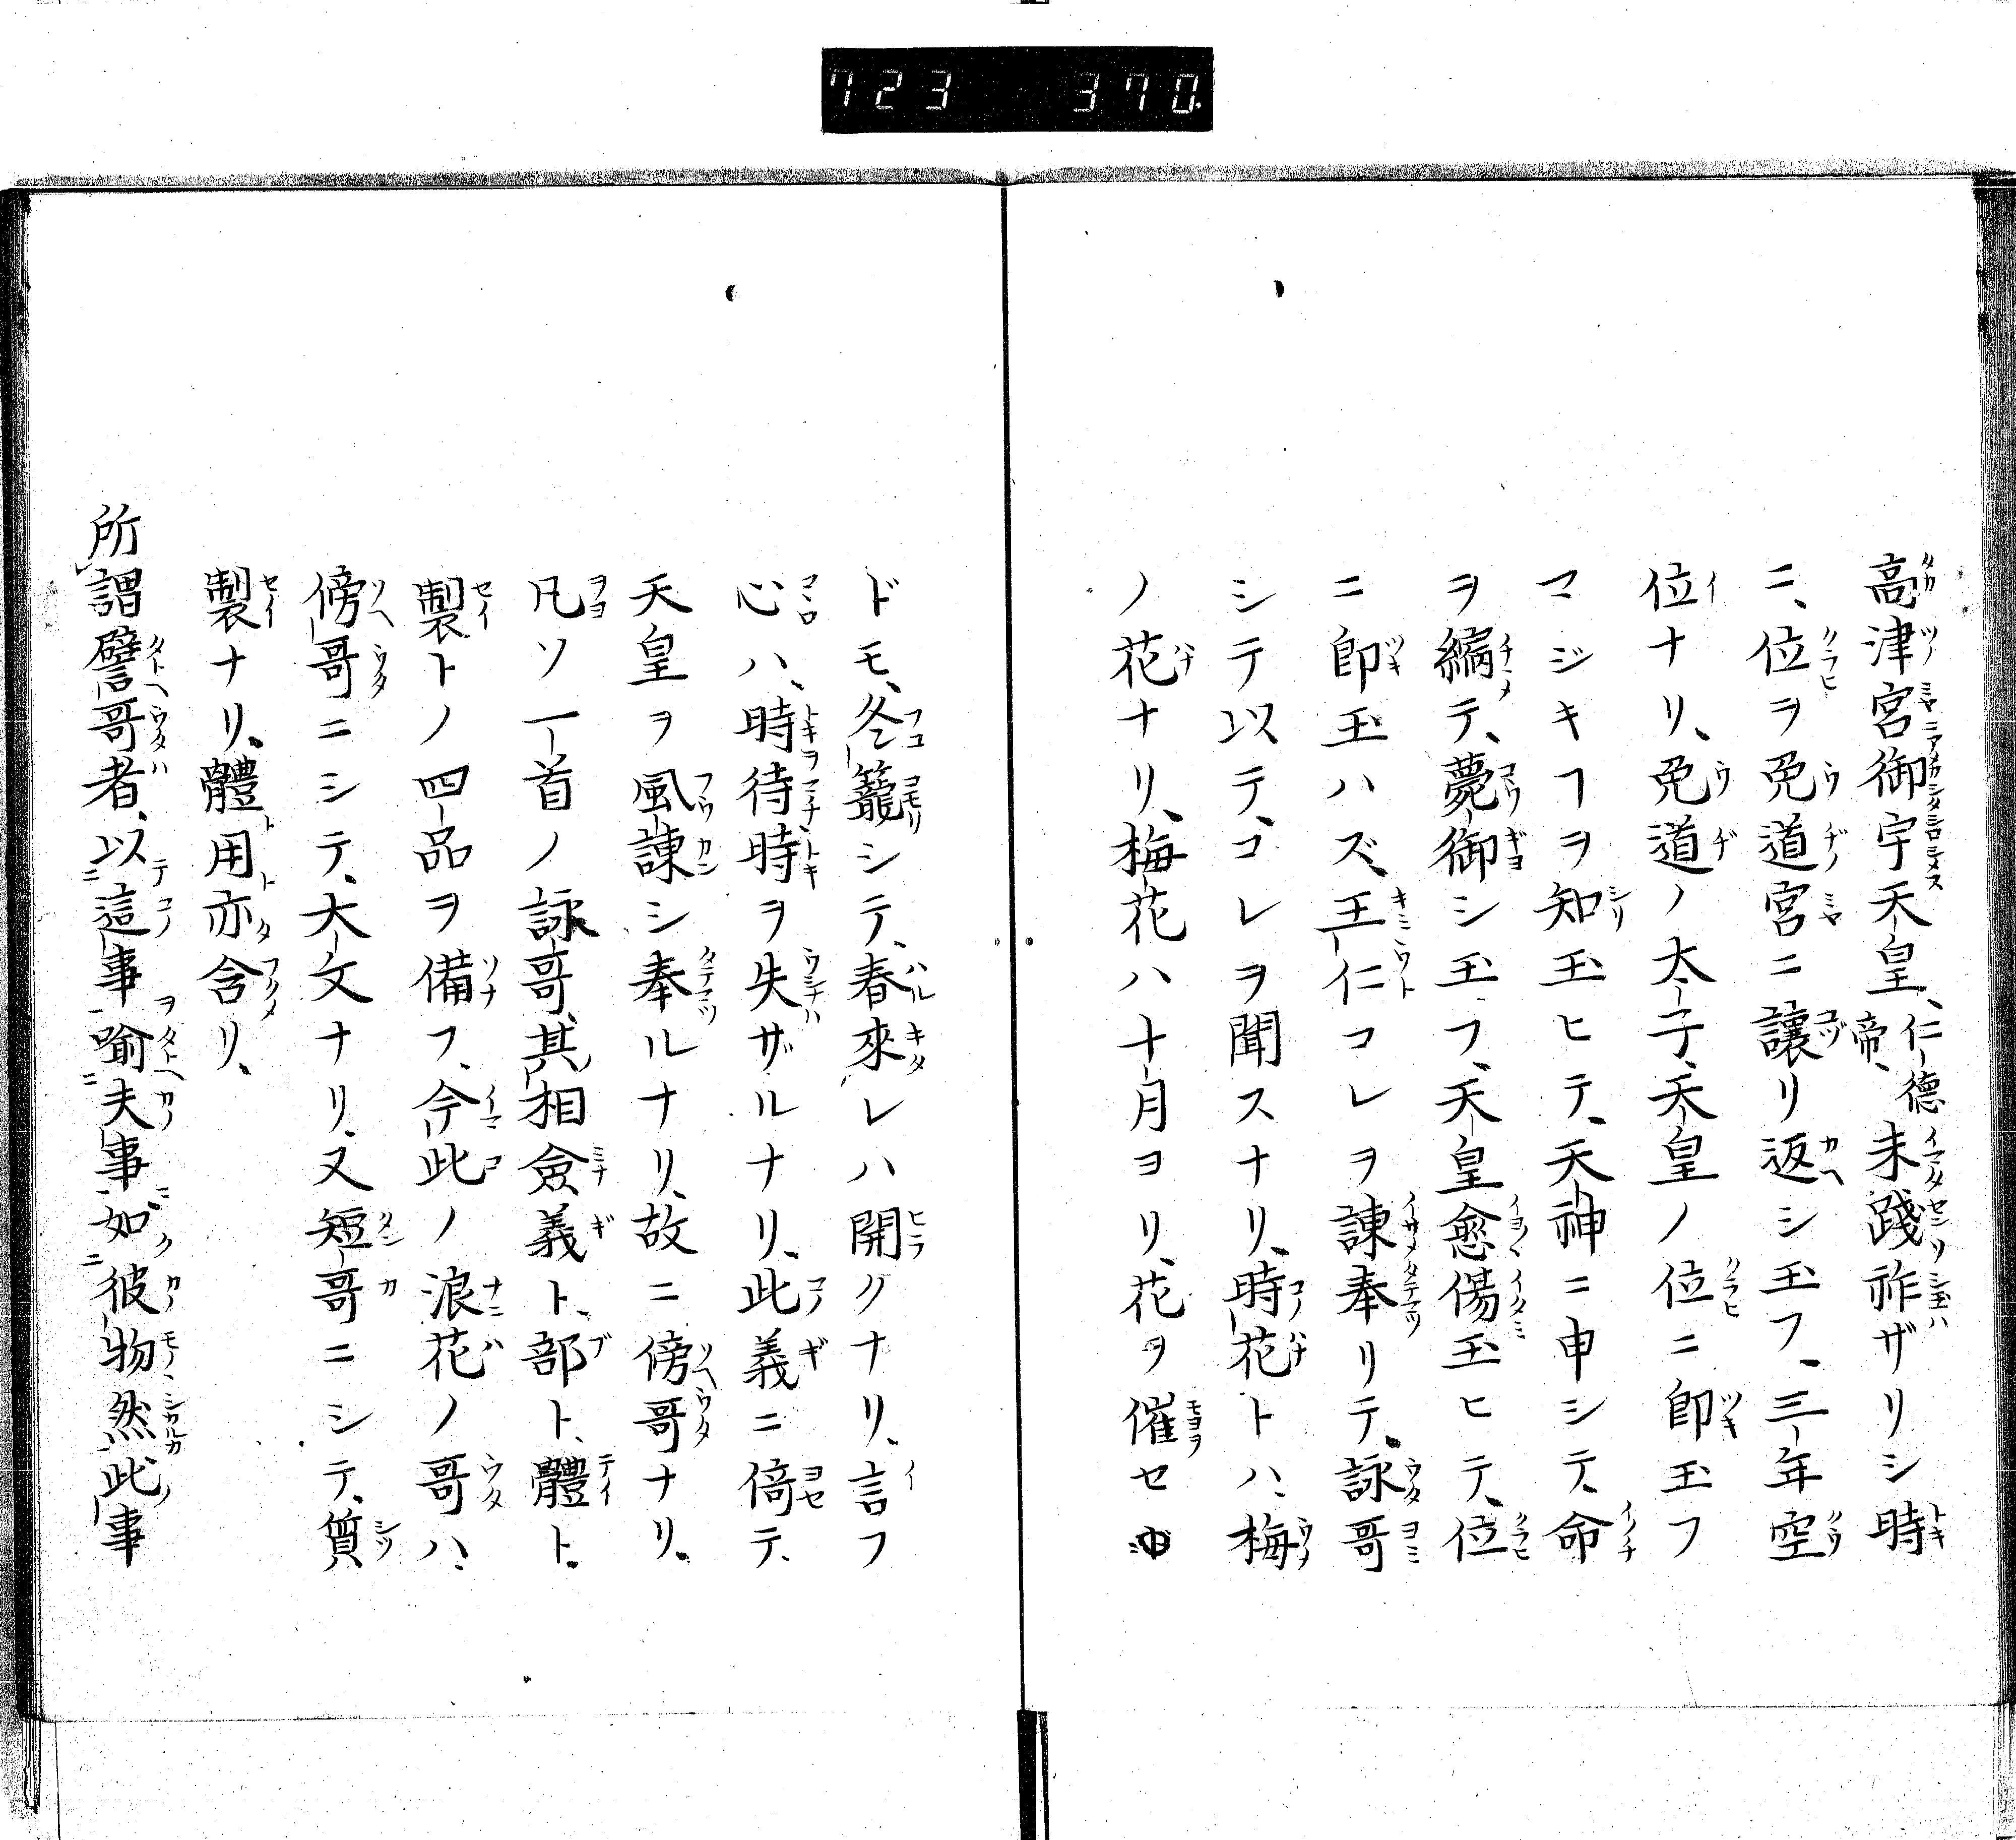 723 370
高津宮御宇天皇、仁德帝、未踐祚ザリシ時
ニ、位ヲ兎道宮ニ讓リ返シ玉フ、三年空
位ナリ、兎道ノ太子、天皇ノ位ニ即玉フ
マジキヿヲ知玉ヒテ、天神ニ申シテ、命
ヲ縮テ、薨御シ玉フ、天皇愈傷玉ヒテ、位
ニ即玉ハズ、王仁コレヲ諫奉リテ、詠哥
シテ以テ、コレヲ聞スナリ、時花トハ、梅
ノ花ナリ、梅花ハ十月ヨリ、花ヲ催セ
ドモ、冬籠シテ、春來レハ開クナリ、言フ
心ハ、時待時ヲ失ザルナリ、此義ニ倚テ、
天皇ヲ風諫シ奉ルナリ、故ニ傍哥ナリ、
凡ソ一首ノ詠哥、其相僉義ト、部ト、體ト、
製トノ四品ヲ備フ、今此ノ浪花ノ哥ハ、
傍哥ニシテ、大文ナリ、又短哥ニシテ、質
製ナリ、體用亦含リ、
所謂譬哥者、以這事喻夫事如彼物然此事